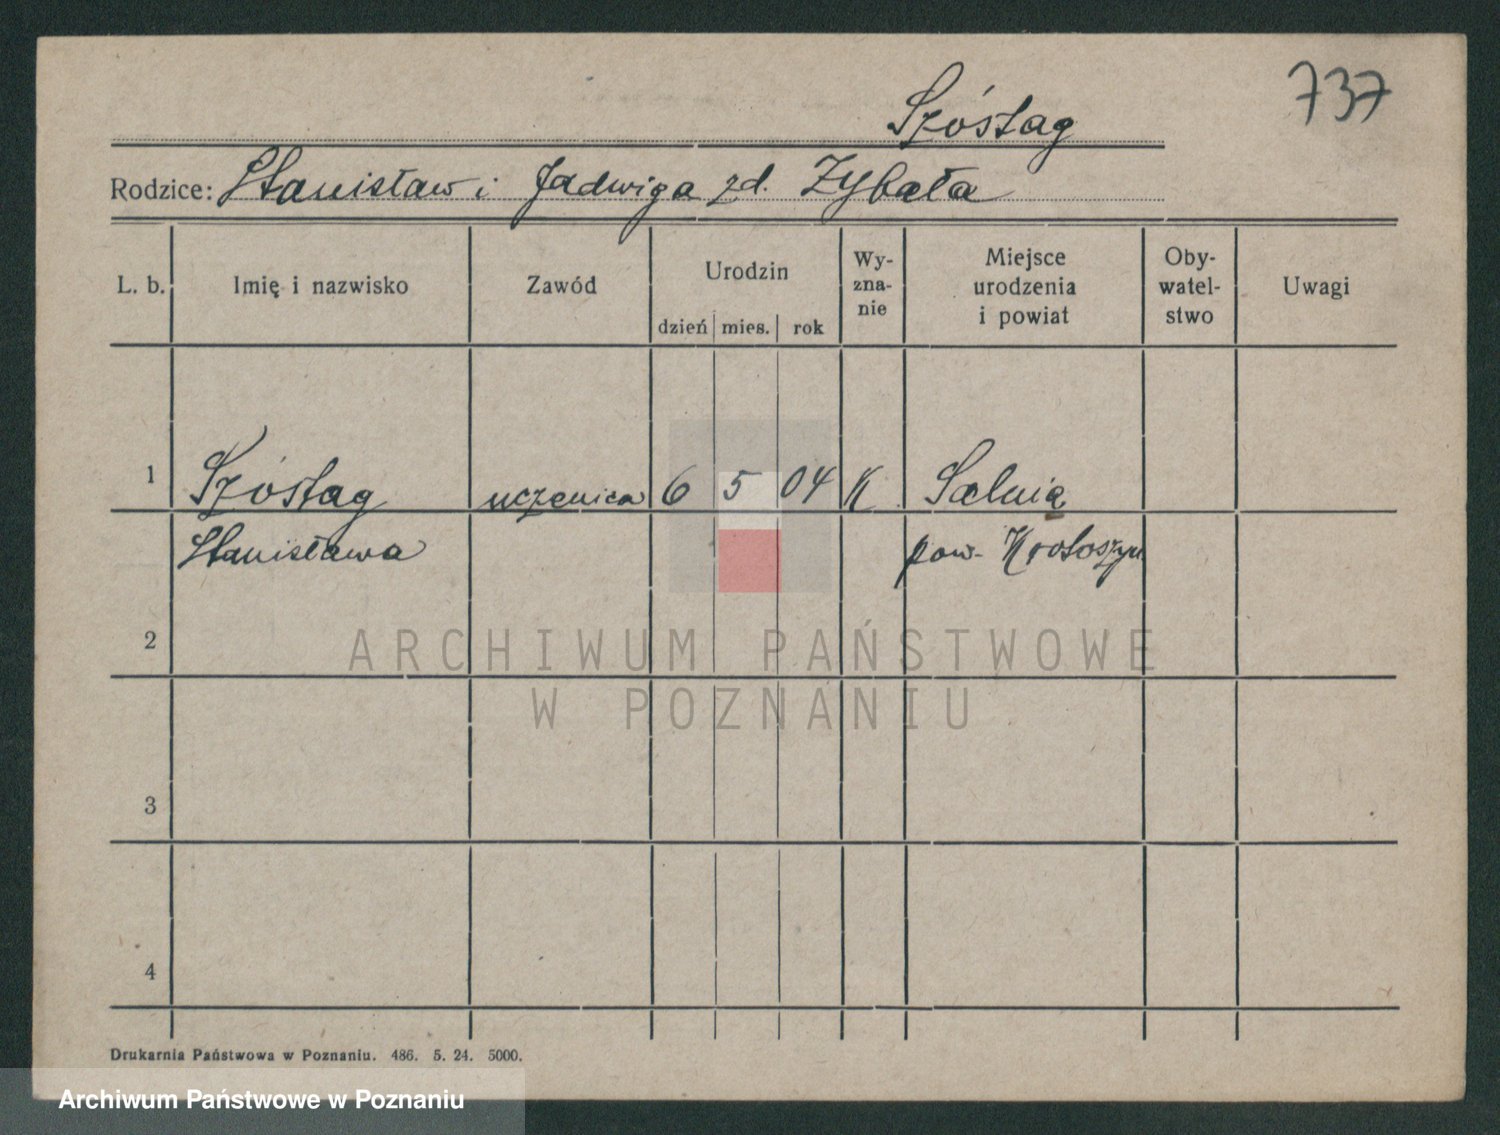 737
Szóstag
Rodzice: Stanisław i Jadwiga zd. Zybała
L. b.
Imię i nazwisko
Zawód
Urodzin
dzień
mies.
rok
Wy-
zna-
nie
Miejsce
urodzenia
i powiat
Oby-
watel-
stwo
Uwagi
1 Szóstag uczenica 6 5 04 K Salnia
Stanisława pow. Krotoszyn
2
ARCHIWUM PAŃSTWOWE
W POZNANIU
3
4
Drukarnia Państwowa w Poznaniu. 486. 5. 24. 5000.
Archiwum Państwowe w Poznaniu